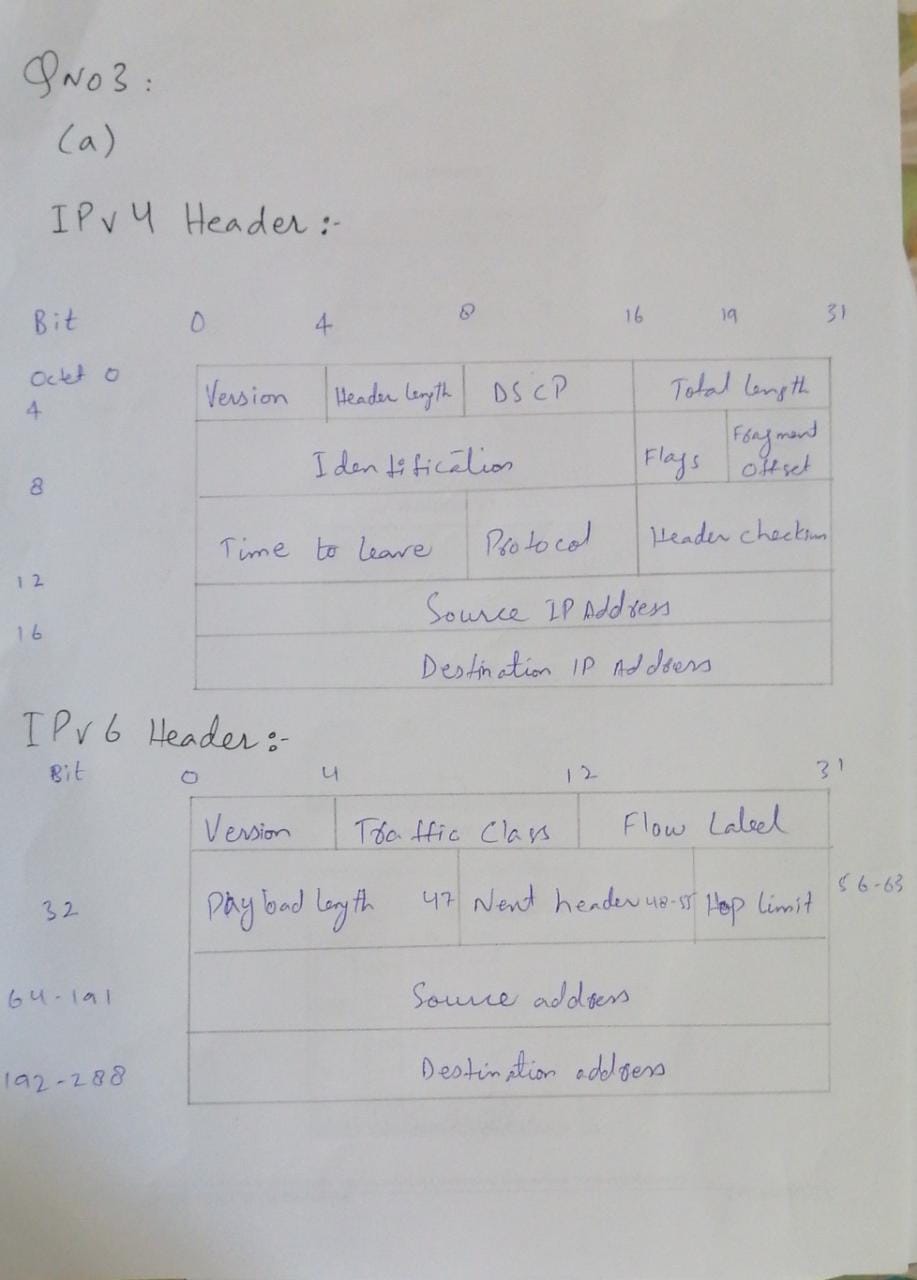 QNO3:
(a)
IPv4 Header:-
Bit 0 4 8 16 19 31
Octet 0 Version Header length DSCP Total length
4 Identification Flags Fragment offset
8 Time to leave Protocol Header checksum
12 Source IP Address
16 Destination IP Address
IPv6 Header:-
Bit 0 4 12 31
Version Traffic Class Flow Label
32 Payload length 47 Next header 48-55 Hop limit 56-63
64-191 Source address
192-288 Destination address